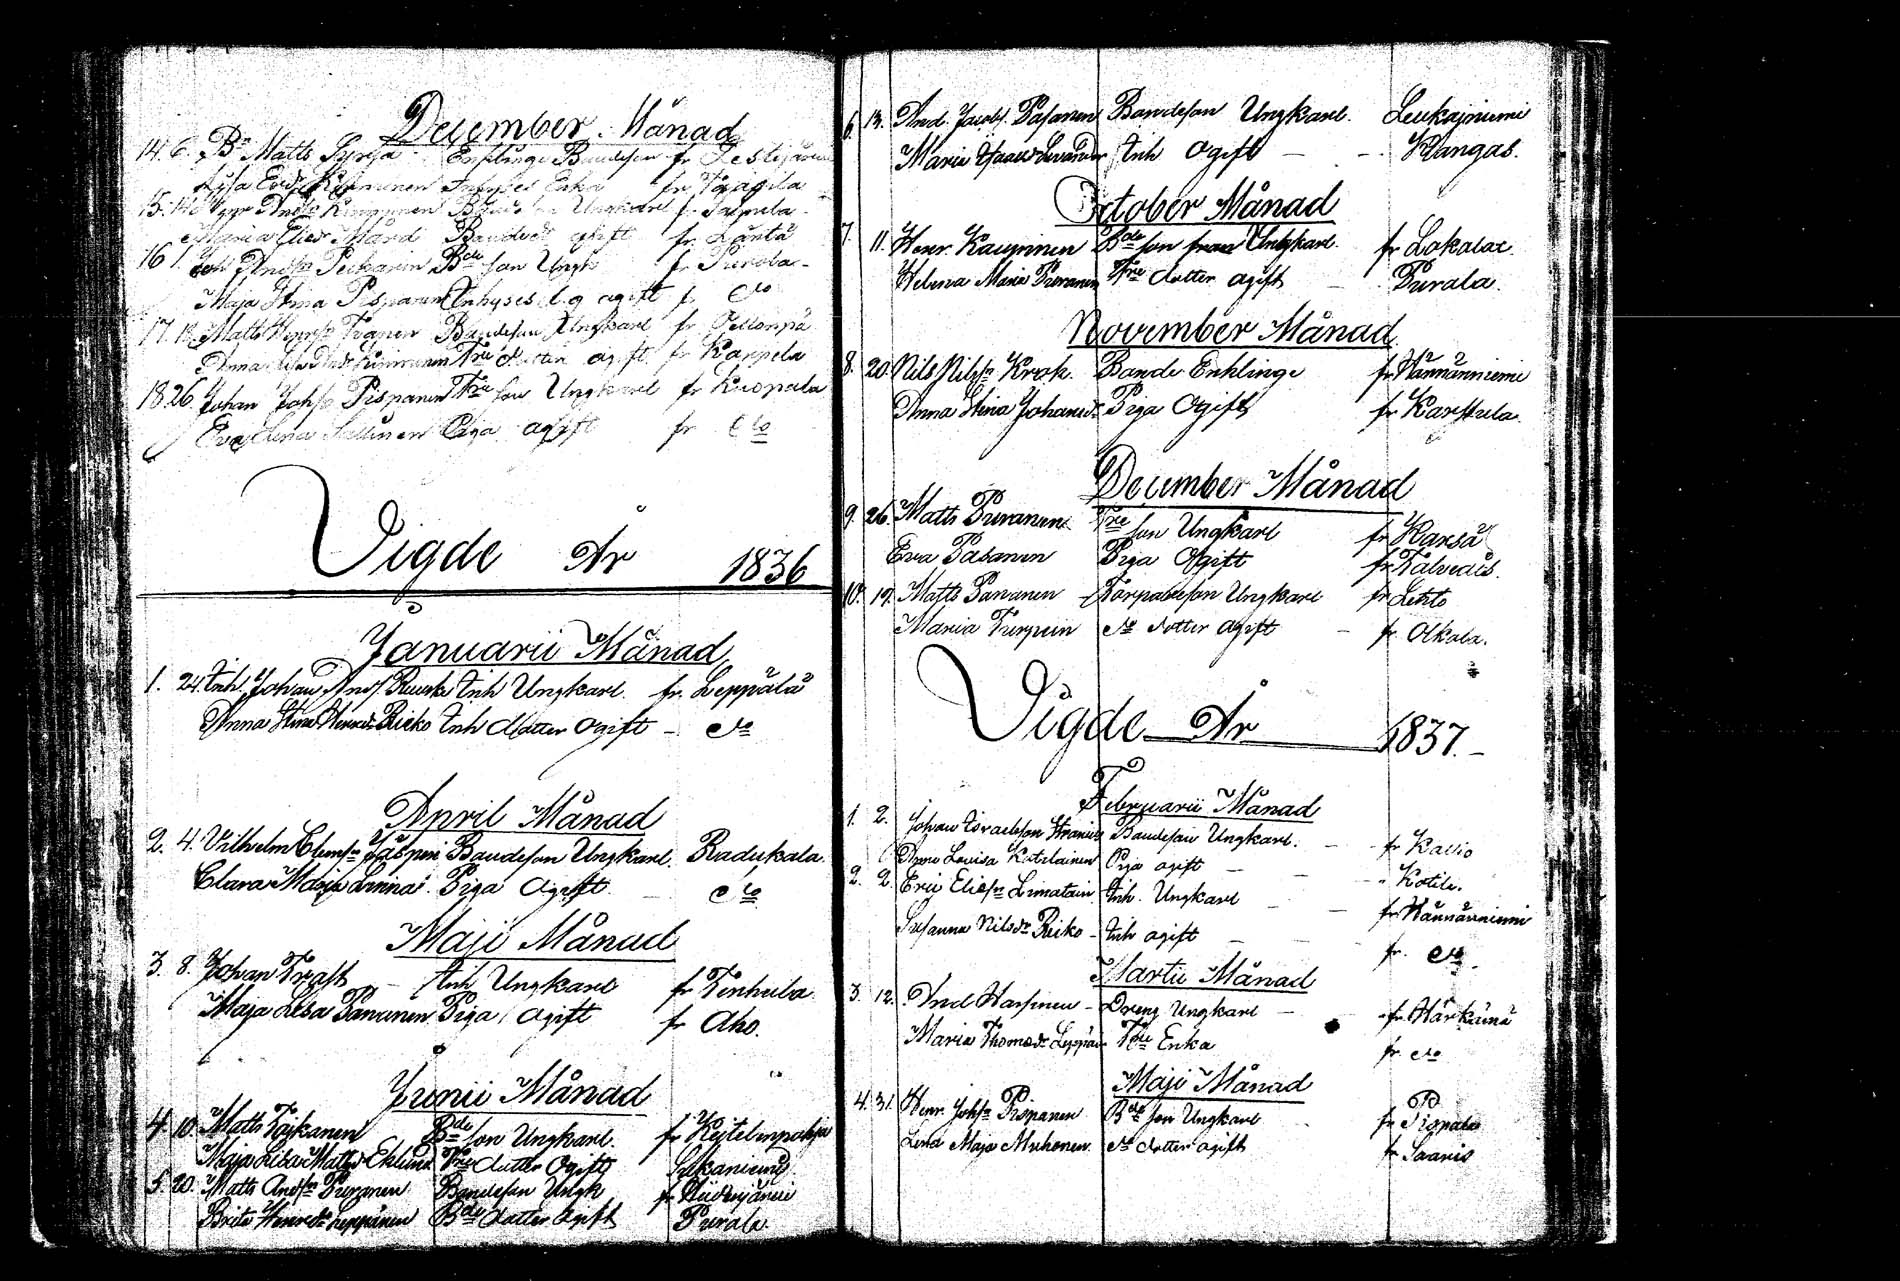 December Månad
14. 6. Bn Matts Syrja Enklinge Bondeson fr
Lisa Inhyses Enka fr
15. Henr Ands. Kinnunen Ungkarl fr
Maria Elisd. Mård Bondedr ogift fr Läntä
16 1. Joh Andsn Pekkarin Bde son Ungk fr Purola
Maja Stina Pispanen Inhyses ogift fr do
17. Matts Henrsn Bondeson Ungkarl fr Pellonpä
Anna Tre dotter ogift fr Kappela
18. 26. Johan Johs Pispanen Tre son Ungkarl fr Kuopala
Eva Lena Sallinen Piga ogift fr do
Vigde År 1836
Januarii Månad
1. 24. Inh. Johan Ands. Ruuska Inh Ungkarl. fr. Leppälä
Anna Stina Henricsdr Reiko Inh dotter ogift - do
April Månad
2. 4. Vilhelm Clemsn Jäspin Bondeson Ungkarl. Radukala.
Clara Maja Piga ogift do
Maji Månad
3. 8. Johan Trast - Inh Ungkarl fr Tenhula
Maja Lisa Pananen Piga ogift fr Aho.
Junii Månad
4. 10. Matts Toikanen Bde son Ungkarl. fr Keitelinpohja
Maja Lisa Mattsdr Eklund Tre dotter ogift
5. 20. Matts Andsn Puranen Bondeson Ungk fr
Brita Henrsdr Leppänen Bde dotter ogift Purala
6. 13. And. Jacobs. Pasanen Bondeson Ungkarl. Leukajniemi
Maria Inh ogift - - Kangas.
October Månad
7. 11. Henr. Kauppinen Bde son Ungkarl. fr Lokalax.
Helena Maria Puranen Tre dotter ogift - Purala.
November Månad
8. 20. Nils Nilsn Krok. Bonde Enklinge fr Hännänniemi
Anna Stina Johansdr Piga Ogift fr Karstula.
December Månad
9. 26. Matts Puranen Tre son Ungkarl fr Karsä
Eva Pasanen Piga Ogift fr
10. 19. Matts Pananen Torpareson Ungkarl fr Lehto
Maria Turpein do dotter ogift - fr. Olkala.
Vigde År 1837.
Februarii Månad
1. 2. Johan Israelson Bondeson Ungkarl. - fr Kallio
Anna Lovisa Kotilainen Piga ogift - - " Kotila.
2. 2. Eric Eliesn Limatain Inh. Ungkarl - - fr Hännänniemi
Susanna Nilsdr Reiko - Inh ogift - - fr. do.
Martii Månad
3. 12. And Hassinen - Dreng Ungkarl - fr. Härkäinä
Maria Thomsdr Leppän Tre Enka fr. do
Maji Månad
4. 31. Henr. Johsn Pispanen Bde son Ungkarl fr Pispala
Lena Maja Muhonen do dotter ogift fr Saaris